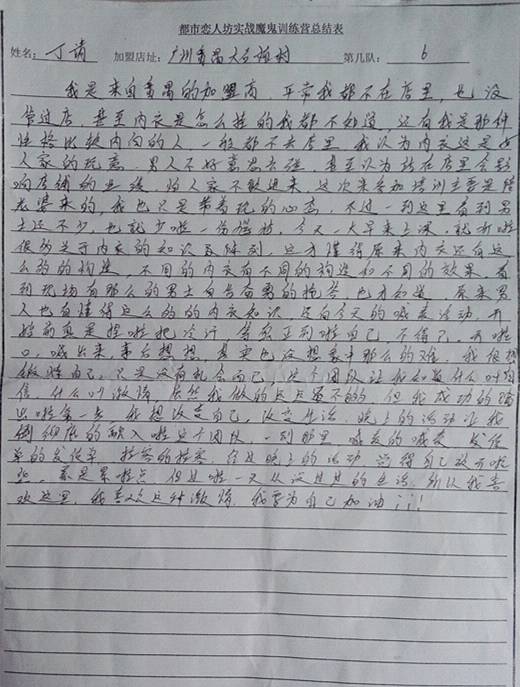 都市恋人坊实战魔鬼训练营总结表
姓名：丁靖 加盟店址：广州番禺大石 村 第几队：6
我是来自番禺的加盟商 平常我都不在店里，也没
管过店，甚至内衣是怎么挂的我都不知道，还有我是那种
性格比较内向的人 一般都不去店里 我认为内衣这是女
人家的玩意 男人不好意思去碰，甚至认为站在店里会影
响店铺的业绩，怕人家不敢进来，这次来参加培训主要是陪
老婆来的，我也只是带着玩的心态，不过一到这里看到男
士还不少，也就少啦一份尴尬，今天一大早来上课，就听啦
很多关于内衣的知识及陈列，这才懂得原来内衣还有这
么多的构造，不同的内衣有不同的构造和不同的效果，看
到现场有那么多的男士自告奋勇的抢答，也才知道，原来男
人也有懂得这么多的内衣知识，还有今天的喊麦活动，开
始前真是捏啦把冷汗 当轮到啦自己 不得已，开啦
口，喊出来，事后想想，其实也没想象中那么的难，我很想
做好自己，只是没有机会而已，这个团队让我知道什么叫自
信，什么叫激情，虽然我做的点点虽不够的，但我成功的踏
出啦第一步 我想改变自己，改变生活，晚上的活动让我
倒彻底的融入啦这个团队，一到那里，喊麦的喊麦，发传
单的发传单，拉客的拉客，经过晚上的活动，觉得自己放开啦
些，虽是累啦点，但过啦一天从没过过的生活，所以我喜
欢这里，我喜欢这种激情，我要为自己加油！！！